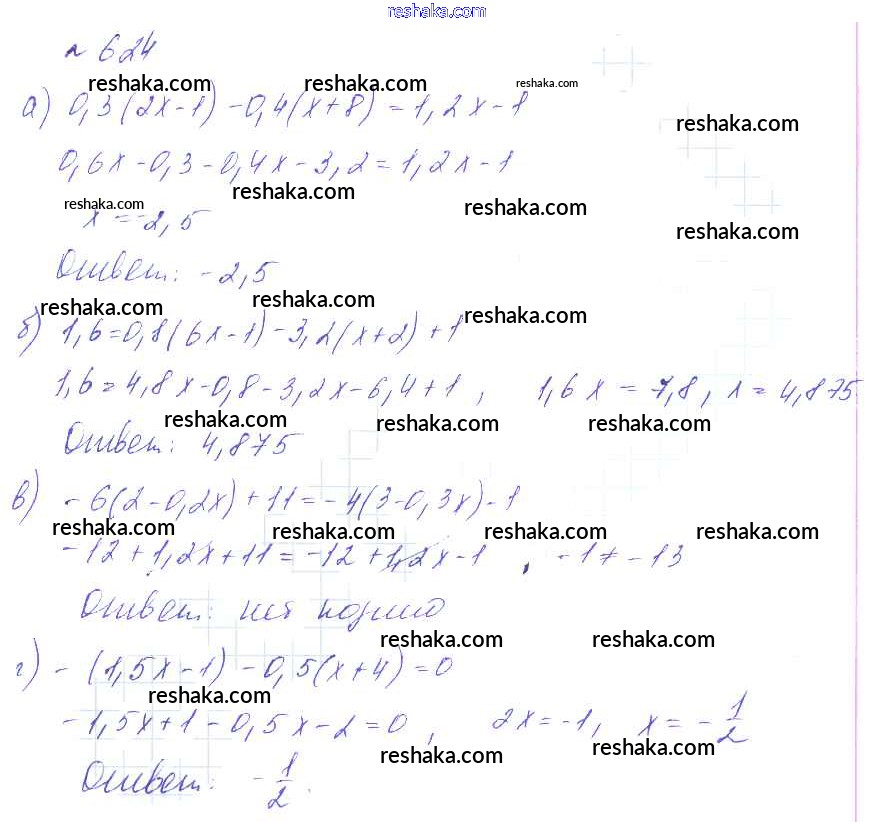 reshaka.com
№ 624
reshaka.com reshaka.com reshaka.com
а) 0,3(2x-1) - 0,4(x+8) = 1,2x - 1
reshaka.com
0,6x - 0,3 - 0,4x - 3,2 = 1,2x - 1
reshaka.com
reshaka.com reshaka.com
x = -2,5
reshaka.com
Ответ: -2,5
reshaka.com reshaka.com reshaka.com
б) 1,6 = 0,8(6x-1) - 3,2(x+2) + 1
1,6 = 4,8x - 0,8 - 3,2x - 6,4 + 1 , 1,6x = 7,8, x = 4,875
reshaka.com reshaka.com reshaka.com
Ответ: 4,875
в) - 6(2 - 0,2x) + 11 = -4(3 - 0,3x) - 1
reshaka.com reshaka.com reshaka.com reshaka.com
-12 + 1,2x + 11 = -12 + 1,2x - 1 , -1 ≠ -13
Ответ: нет
reshaka.com reshaka.com
г) - (1,5x - 1) - 0,5(x+4) = 0
reshaka.com
-1,5x + 1 - 0,5x - 2 = 0 , 2x = -1, x = - 1/2
reshaka.com reshaka.com
Ответ: - 1/2 .